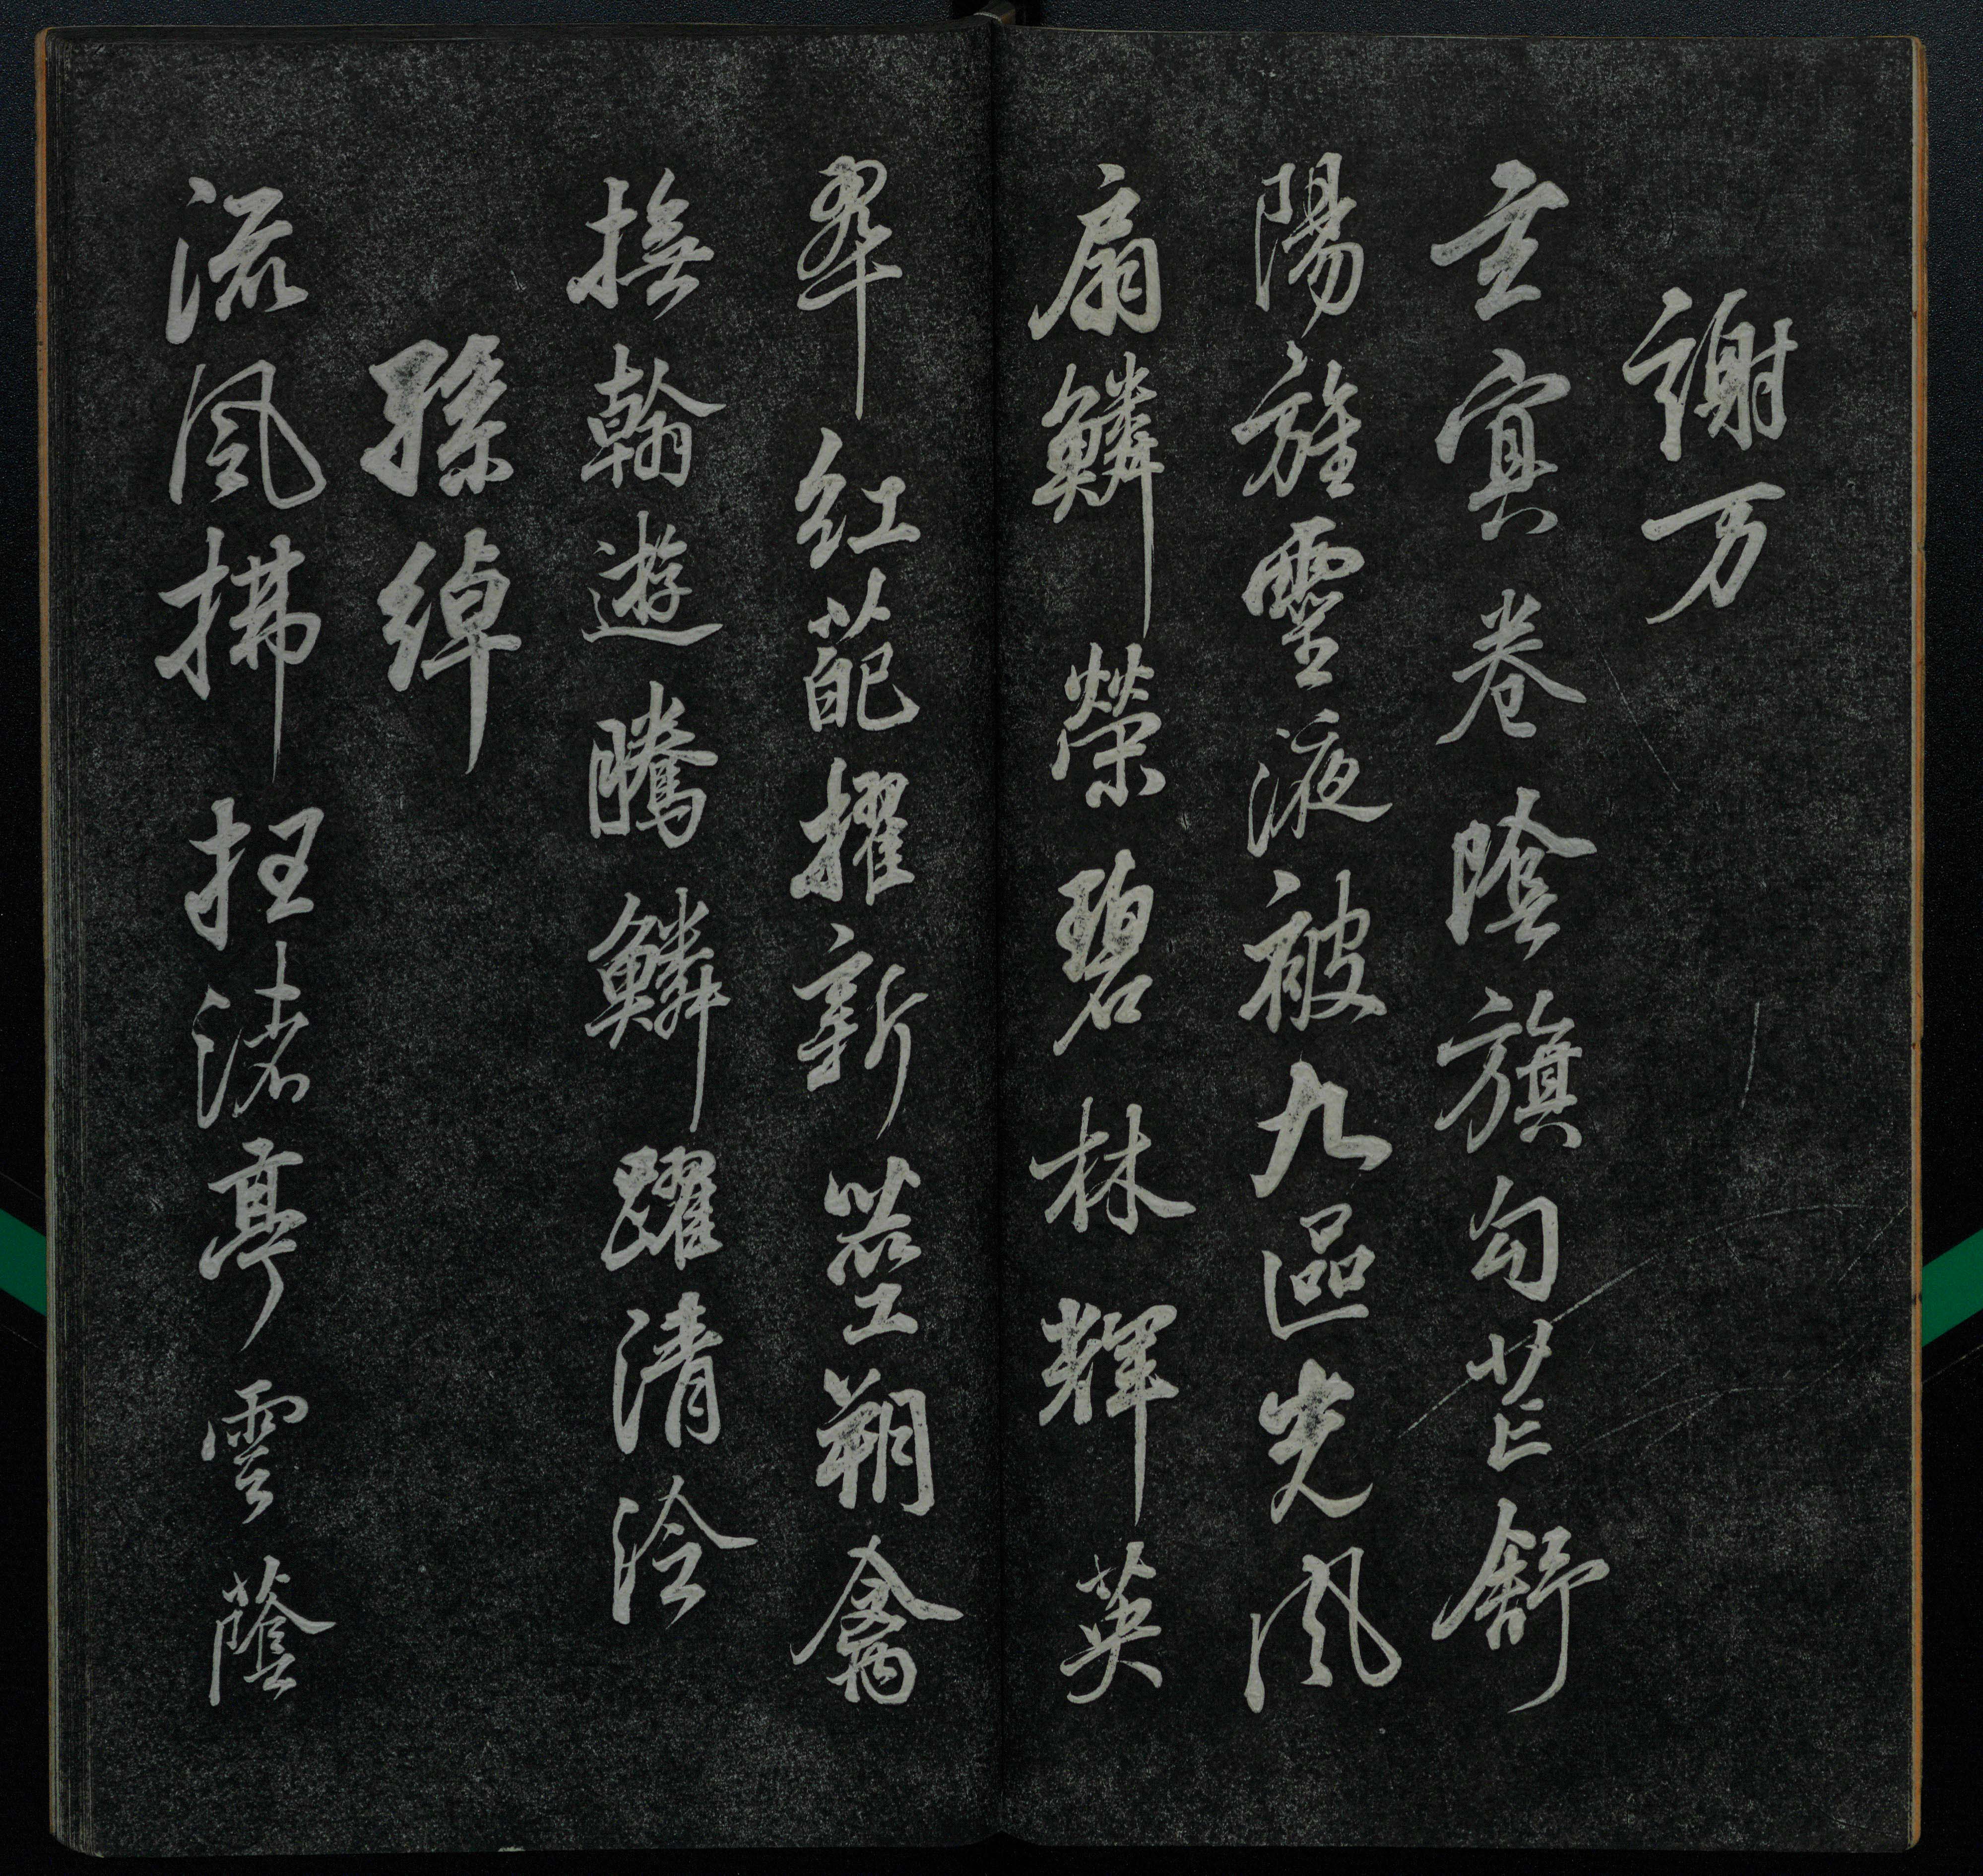 謝万
玄冥卷陰旗勾芒舒
陽旌靈液被九區光風
扇鱗榮碧林輝英
翠紅葩擢新莖朔禽
撫翰遊騰鱗躍清泠
孫綽
流風拂抂渚亭雲蔭